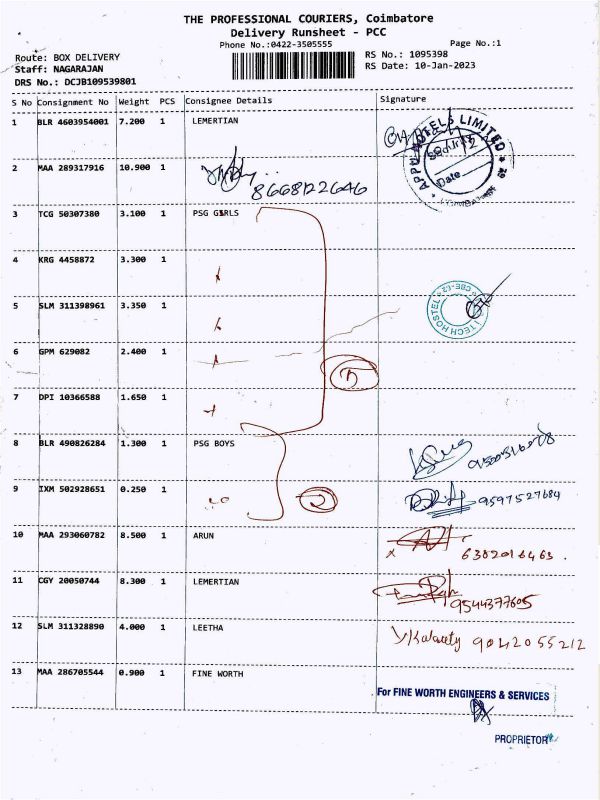 THE PROFESSIONAL COURIERS, Coimbatore
Delivery Runsheet - PCC
Phone No.:0422-3505555
Page No.:1
Route: BOX DELIVERY
RS No.: 1095398
Staff: NAGARAJAN
RS Date: 10-Jan-2023
DRS No.: DCJB109539801
S No Consignment No Weight PCS Consignee Details Signature
1 BLR 4603954001 7.200 1 LEMERTIAN
HOSTELS LIMITED
Security
Date
2 MAA 289317916 10.900 1
8668122646
3 TCG 50307380 3.100 1 PSG GIRLS
4 KRG 4458872 3.300 1
5 SLM 311398961 3.350 1
I TECH HOSTEL CBE-62
6 GPM 629082 2.400 1
5
7 DPI 10366588 1.650 1
8 BLR 490826284 1.300 1 PSG BOYS
9 IXM 502928651 0.250 1 2 9597527684
10 MAA 293060782 8.500 1 ARUN
6382016463.
11 CGY 20050744 8.300 1 LEMERTIAN
9544377605
12 SLM 311328890 4.000 1 LEETHA
9042055212
13 MAA 286705544 0.900 1 FINE WORTH
For FINE WORTH ENGINEERS & SERVICES
PROPRIETOR